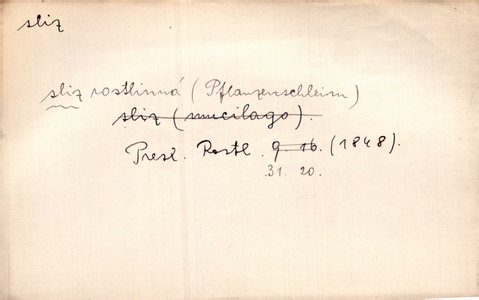 sliz
sliz rostlinná (Pflanzenschleim)
sliz (mucilago).
Presl. Rostl. 9. 16. (1848).
31. 20.